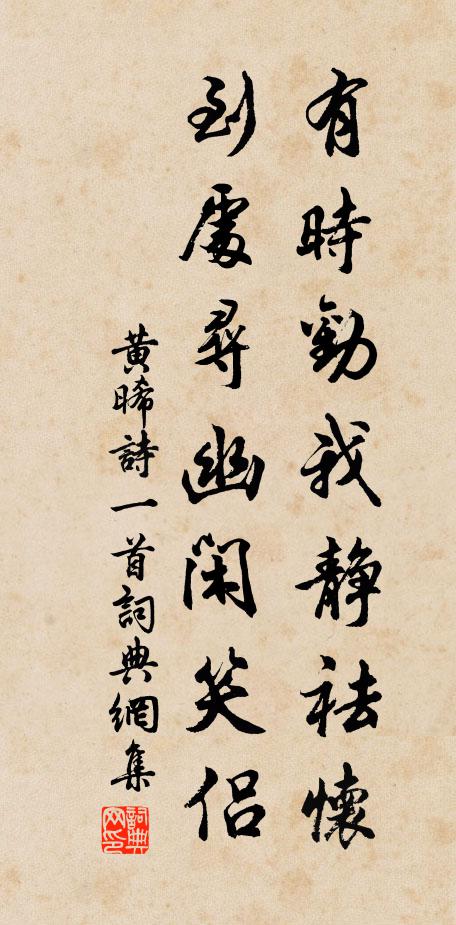 有時勸我静祛懷
到處尋幽閑笑侣
黃晞詩一首詞典網集
詞典网印